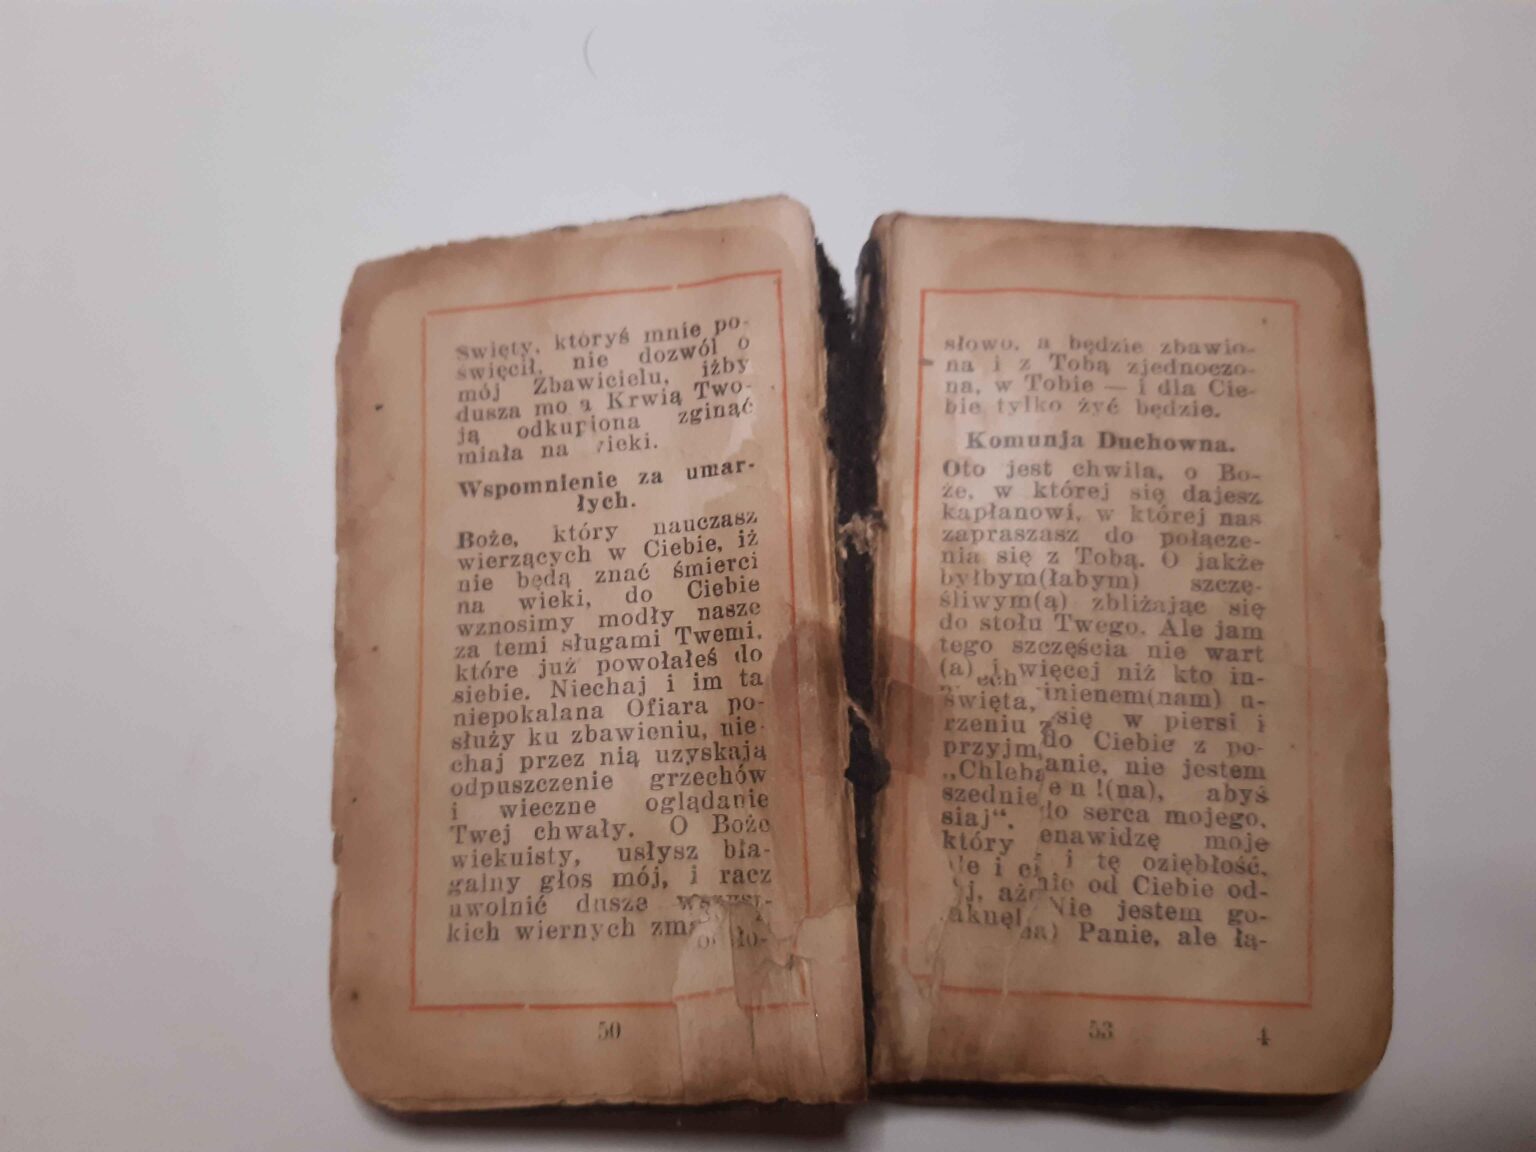 Święty, któryś mnie po-
święcił, nie dozwól o
mój Zbawicielu, iżby
dusza mo Krwią Two-
ją odkupiona zginąć
miała na wieki.
Wspomnienie za umar-
łych.
Boże, który nauczasz
wierzących w Ciebie, iż
nie będą znać śmierci
na wieki, do Ciebie
wznosimy modły nasze
za temi sługami Twemi,
które już powołałeś do
siebie. Niechaj i im ta
niepokalana Ofiara po-
służy ku zbawieniu, nie-
chaj przez nią uzyskają
odpuszczenie grzechów
i wieczne oglądanie
Twej chwały. O Boże
wiekuisty, usłysz bła-
galny głos mój, i racz
uwolnić dusze wszyst-
kich wiernych
50
słowo, a będzie zbawio-
na i z Tobą zjednoczo-
na, w Tobie — i dla Cie-
bie tylko żyć będzie.
Komunja Duchowna.
Oto jest chwila, o Bo-
że, w której się dajesz
kapłanowi, w której nas
zapraszasz do połącze-
nia się z Tobą. O jakże
byłbym(łabym) szczę-
śliwym(ą) zbliżając się
do stołu Twego. Ale jam
tego szczęścia nie wart
(a) i więcej niż kto in-
święta, inienem(nam) u-
rzeniu się w piersi i
przyjm do Ciebie z po-
„Chleba anie, nie jestem
szednie en!(na), abyś
siaj“. do serca mojego,
który enawidzę moje
i tę oziębłość,
od Ciebie od-
Nie jestem go-
Panie, ale łą-
53 4